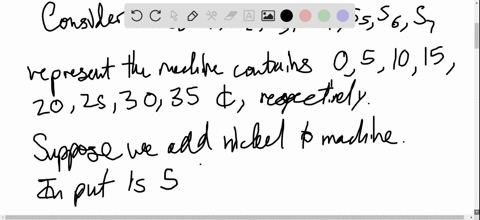 Consider S5, S6, S7
represent the machine contains 0, 5, 10, 15,
20, 25, 30, 35 ¢, respectively.
Suppose we add nickel to machine.
In put is 5